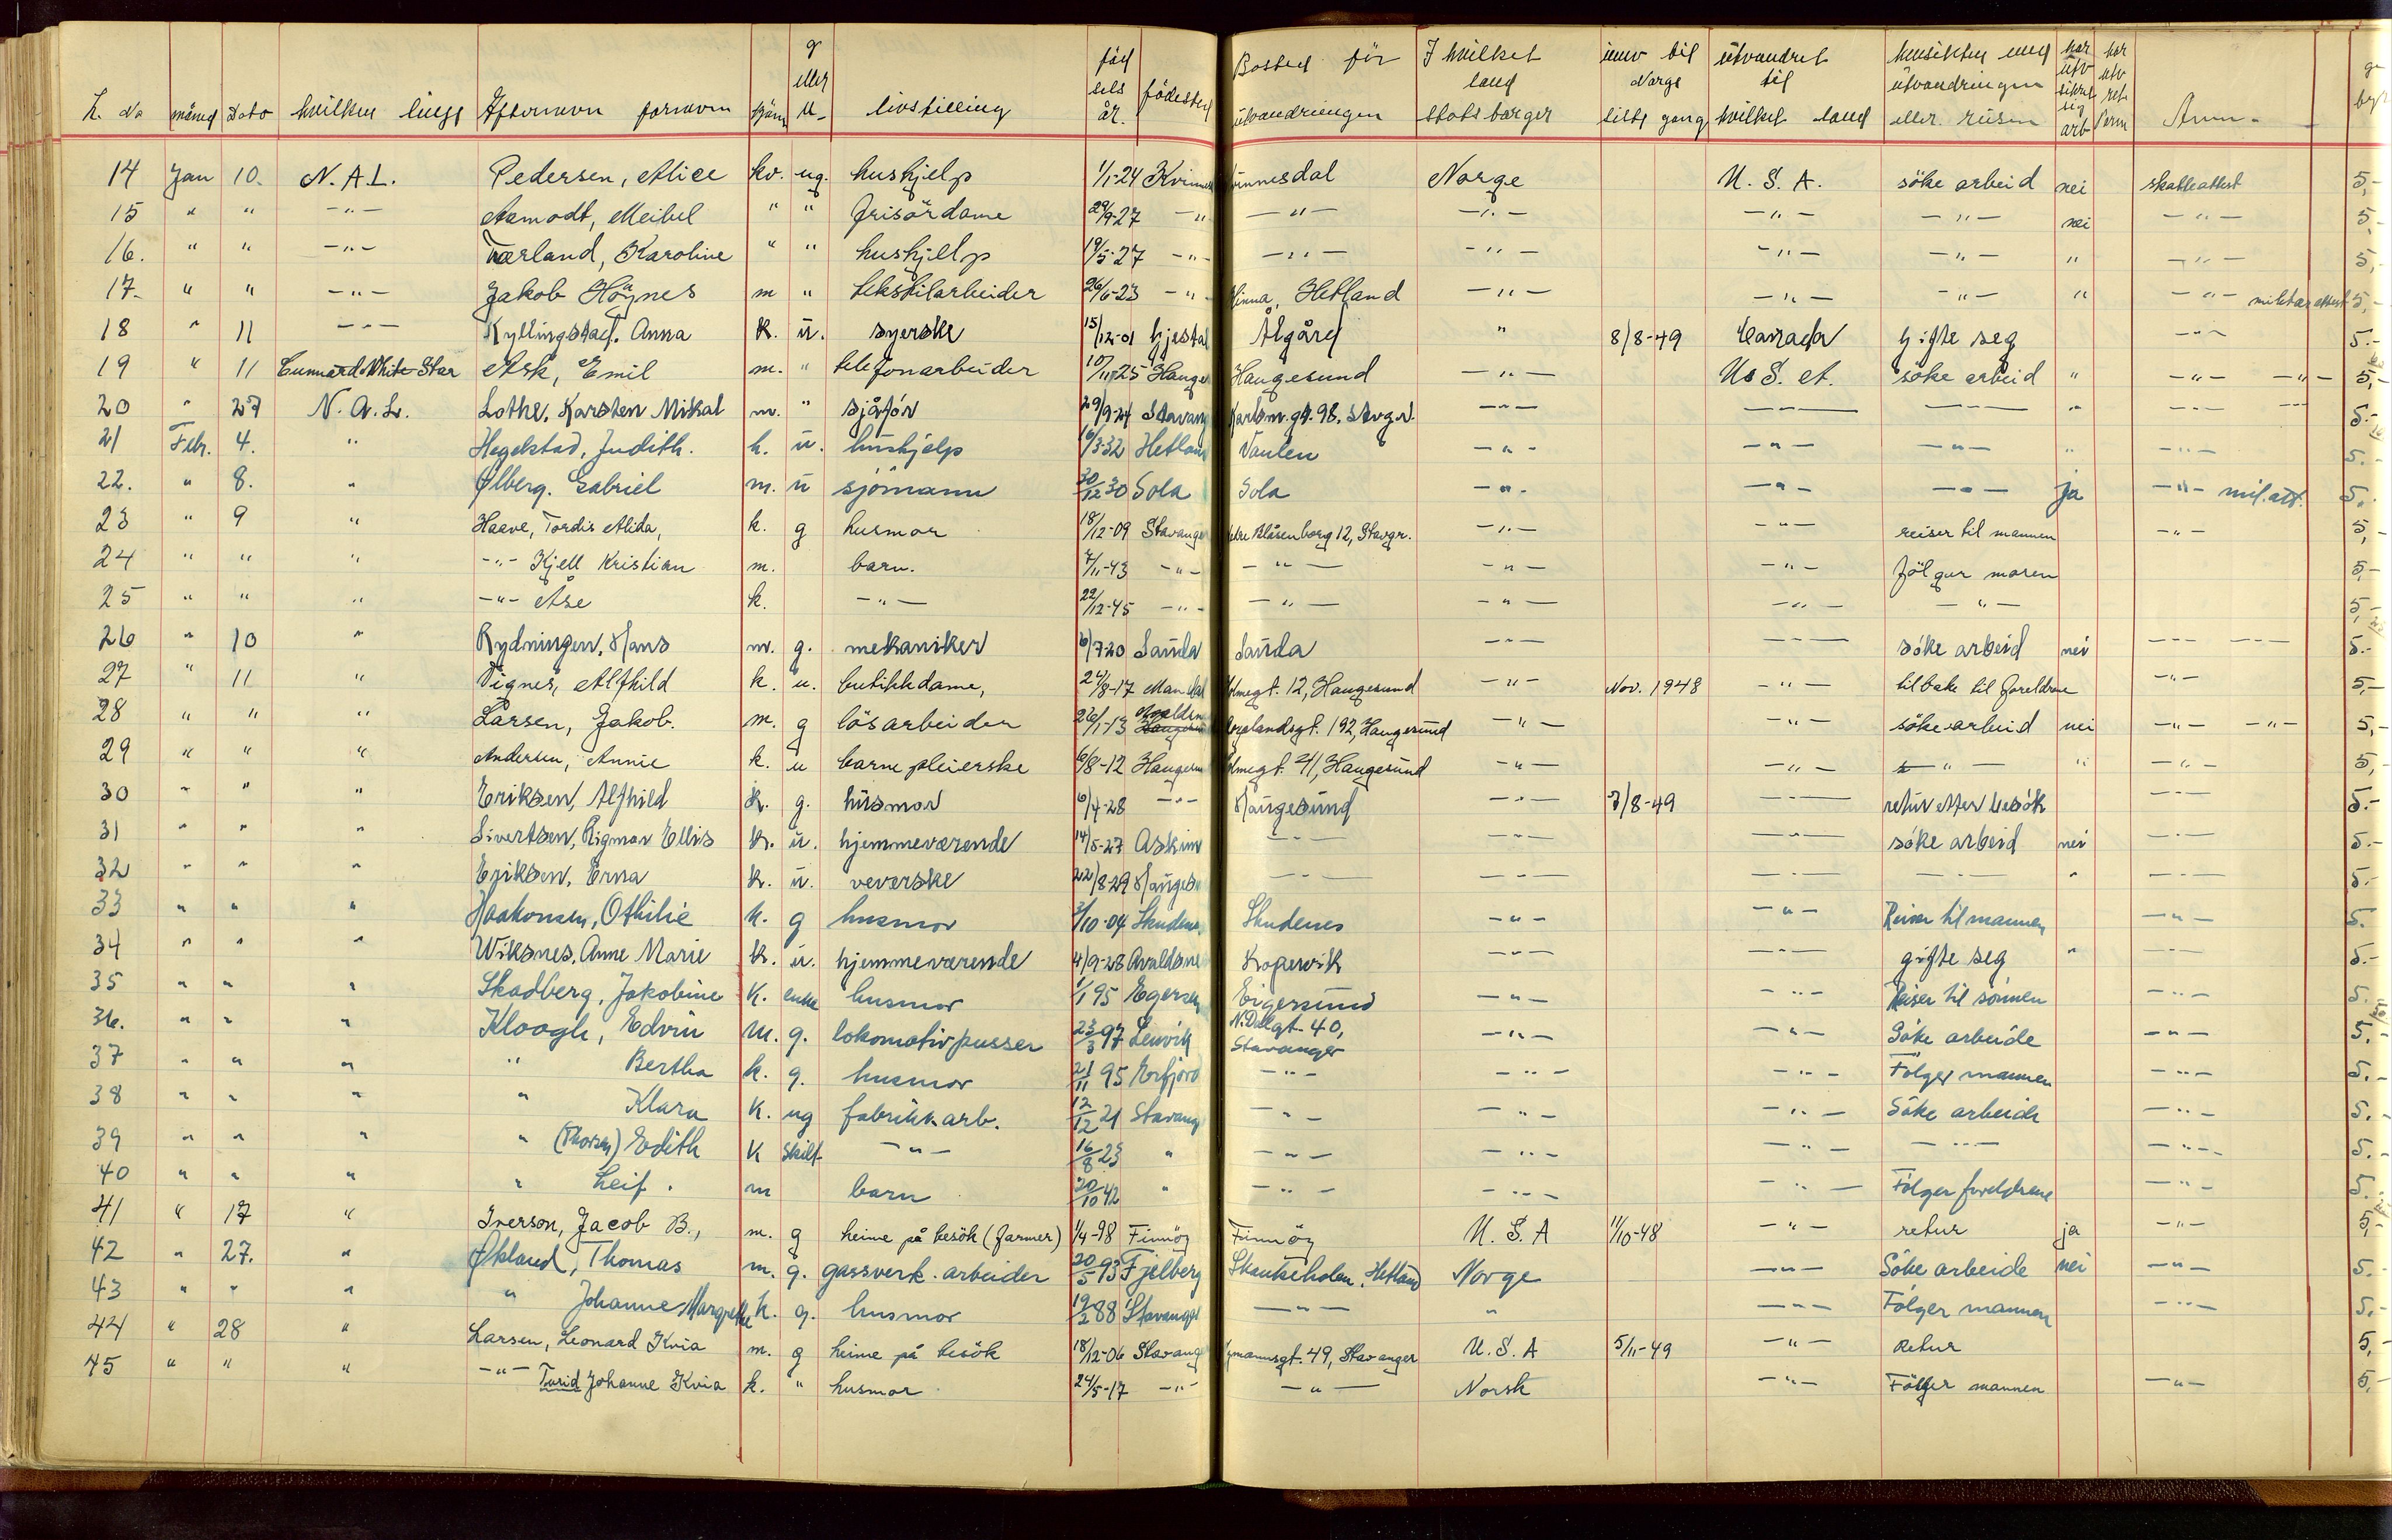 L. No månd Dato hvilken linje Efternavn fornavn kjønn g eller u- livstilling fød sels år. födested Bosted för utvandringen I hvilket land stats borger innv til Norge siste gang utvandret til hvilket land hensikten med utvandringen eller reisen har utv sikret sig arb har utv ret Perm Anm-
14 Jan 10. N.A.L. Pedersen, Alice kv. ug. hushjelp 1/1-24 Kvinnesdal Norge U.S.A. söke arbeid nei skatteattest 5,-
15 " " -"- Aamodt, Meibel " " frisördame 29/9-27 -"- -"- -"- -"- -"- nei -"- 5,-
16. " " -"- Tærland, Karoline " " hushjelp 19/5-27 -"- -"- -"- -"- -"- " -"- 5,-
17. " " -"- Jakob Höynes m " tekstilarbeider 26/6-23 -"- Hinna, Hetland -"- -"- -"- " -"- militærattest 5,-
18 " 11 -"- Kyllingstad. Anna k. u. syerske 15/12-01 Gjestal Ålgård " 8/8-49 Canada gifte seg -"- 5.-
19 " 11 Cunnard White Star Ask, Emil m. " telefonarbeider 10/11-25 Hauge Haugesund -"- U.S.A. söke arbeid " -"- -"- 5,-
20 " 27 N.A.L. Lothe, Karsten Mikal m. " sjåfór 29/9-24 Stavang Karlsm.gt. 98. Stvgr. -"- -"- -"- " -"- -"- 5.-
21 Febr. 4. " Hegelstad, Judith. k. u. hushjelp 16/3-32 Hetland Vaulen -"- -"- -"- " -"- 5.-
22. " 8. " Ølberg. Gabriel m. u sjömann 30/12 30 Sola Sola -"- -"- -"- ja -"- mil.att. 5.
23 " 9 " Haave, Tordis Alida, k. g husmor 18/12-09 Stavange Blåsenborg 12, Stavgr. -"- -"- reiser til mannen -"- 5,-
24 " " " -"- Kjell Kristian m. barn. 7/11-43 -"- -"- -"- -"- fölger moren 5,-
25 " " " -"- Åse k. -"- 22/12-45 -"- -"- -"- -"- -"- 5,-
26 " 10 " Rydningen, Hans m. g. mekaniker 6/7-20 Sauda Sauda -"- -"- söke arbeid nei -"- -"- 5.-
27 " 11 " Vignes, Alfhild k. u. butikkdame, 24/8-17 Mandal gt. 12, Haugesund -"- Nov. 1948 -"- tilbake til foreldrene -"- 5,-
28 " " " Larsen, Jakob. m. g lösarbeider 26/1-13 Avaldsn Haugesun landsgt. 192, Haugesund -"- -"- söke arbeid nei -"- -"- 5,-
29 " " " Andersen, Annie k. u barnepleierske 6/8-12 Haugesu gt. 41, Haugesund -"- -"- -"- " -"- 5,-
30 " " " Eriksen, Alfhild k. g. husmor 6/4-28 -"- Haugesund -"- 3/8-49 -"- retur etter besök -"- 5.-
31 " " " Sivertsen, Rigmor Ellis k. u. hjemmeværende 14/5-27 Askim -"- -"- -"- söke arbeid nei -"- 5.-
32 " " " Eriksen, Erna k. u. veverske 22/8-29 Hauges -"- -"- -"- -"- " -"- 5.-
33 " " " Haakonsen, Othilie k. g husmor 3/10-04 Skudene Skudenes -"- -"- Reiser til mannen -"- 5.
34 " " " Wiksnes, Anne Marie k. u. hjemmeværende 4/9-28 Avaldsne Kopervik -"- -"- gifte seg " -"- 5.-
35 " " " Skadberg, Jakobine K. enke husmor 1/1 95 Egersun Eigersund -"- -"- Reiser til sönnen -"- 5.
36. " " " Kloogh, Edvin m. g. lokomotivpusser 23/3 97 Lenvik N.Dalgt. 40, Stavanger -"- -"- Söke arbeide -"- 5.-
37 " " " " Bertha k. g. husmor 21/11 95 Erfjord -"- -"- -"- Fölger mannen -"- 5.-
38 " " " " Klara K. ug fabrikk arb. 12/12 21 Stavang -"- -"- -"- Söke arbeide -"- 5.-
39 " " " " (Thorsen) Edith K skilt -"- 16/8 23 " -"- -"- -"- -"- -"- 5.-
40 " " " " Leif. m barn 20/10 42 " -"- -"- -"- Fölger foreldrene -"- 5.
41 " 17 " Iverson, Jacob B., m. g heime på besök (farmer) 1/4-98 Finnöy Finnöy U.S.A 11/10-48 -"- retur ja -"- 5,-
42 " 27. " Økland, Thomas m. g. gassverk. arbeider 20/5 93 Fjelberg Skankeholen. Hetland Norge -"- Söke arbeide nei -"- 5.-
43 " " " " Johanne Margrethe k. g. husmor 19/2 88 Stavange -"- " -"- Fölger mannen -"- 5.-
44 " 28 " Larsen, Leonard Kvia m. g heime på besök 18/12-06 Stavang mannsgt. 49, Stavanger U.S.A 5/11-49 -"- Retur 5,-
45 " " " -"- Turid Johanne Kvia k. " husmor 24/5-17 -"- -"- Norsk -"- Fölger mannen -"- 5,-